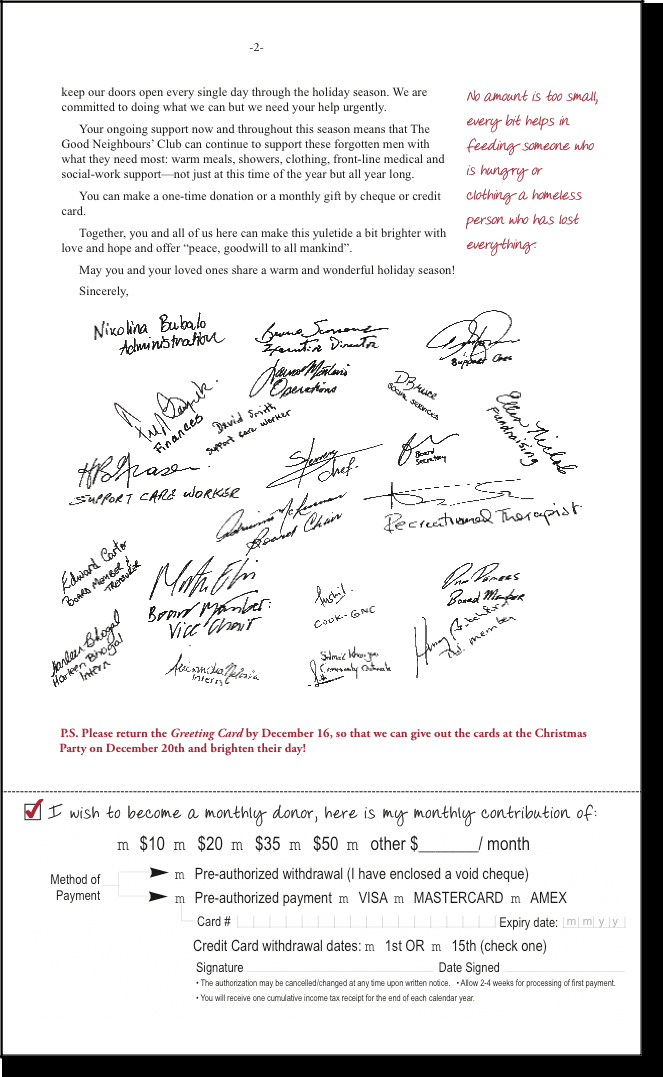 -2-
keep our doors open every single day through the holiday season. We are
committed to doing what we can but we need your help urgently.
Your ongoing support now and throughout this season means that The
Good Neighbours' Club can continue to support these forgotten men with
what they need most: warm meals, showers, clothing, front-line medical and
social-work support—not just at this time of the year but all year long.
You can make a one-time donation or a monthly gift by cheque or credit
card.
Together, you and all of us here can make this yuletide a bit brighter with
love and hope and offer “peace, goodwill to all mankind”.
May you and your loved ones share a warm and wonderful holiday season!
Sincerely,
No amount is too small,
every bit helps in
feeding someone who
is hungry or
clothing a homeless
person who has lost
everything.
Nikolina Bubalo
Administration
Executive Director
Support Care
Operations
DBruce
Social Services
Finances
David Smith
Support care worker
Ellen Nichols
Fundraising
SUPPORT CARE WORKER
Chef.
Board
Secretary
Board Chair
Recreational Therapist
Edward Carter
Board Member &
Treasurer
Board Member.
Vice Chair
COOK-GNC
Board Member
Bd. member
Harleen Bhogal
Harleen Bhogal
Intern
Intern
Community Outreach
P.S. Please return the Greeting Card by December 16, so that we can give out the cards at the Christmas
Party on December 20th and brighten their day!
I wish to become a monthly donor, here is my monthly contribution of:
m $10 m $20 m $35 m $50 m other $_______/ month
Method of
Payment
m Pre-authorized withdrawal (I have enclosed a void cheque)
m Pre-authorized payment m VISA m MASTERCARD m AMEX
Card # Expiry date: m m y y
Credit Card withdrawal dates: m 1st OR m 15th (check one)
Signature Date Signed
• The authorization may be cancelled/changed at any time upon written notice. • Allow 2-4 weeks for processing of first payment.
• You will receive one cumulative income tax receipt for the end of each calendar year.